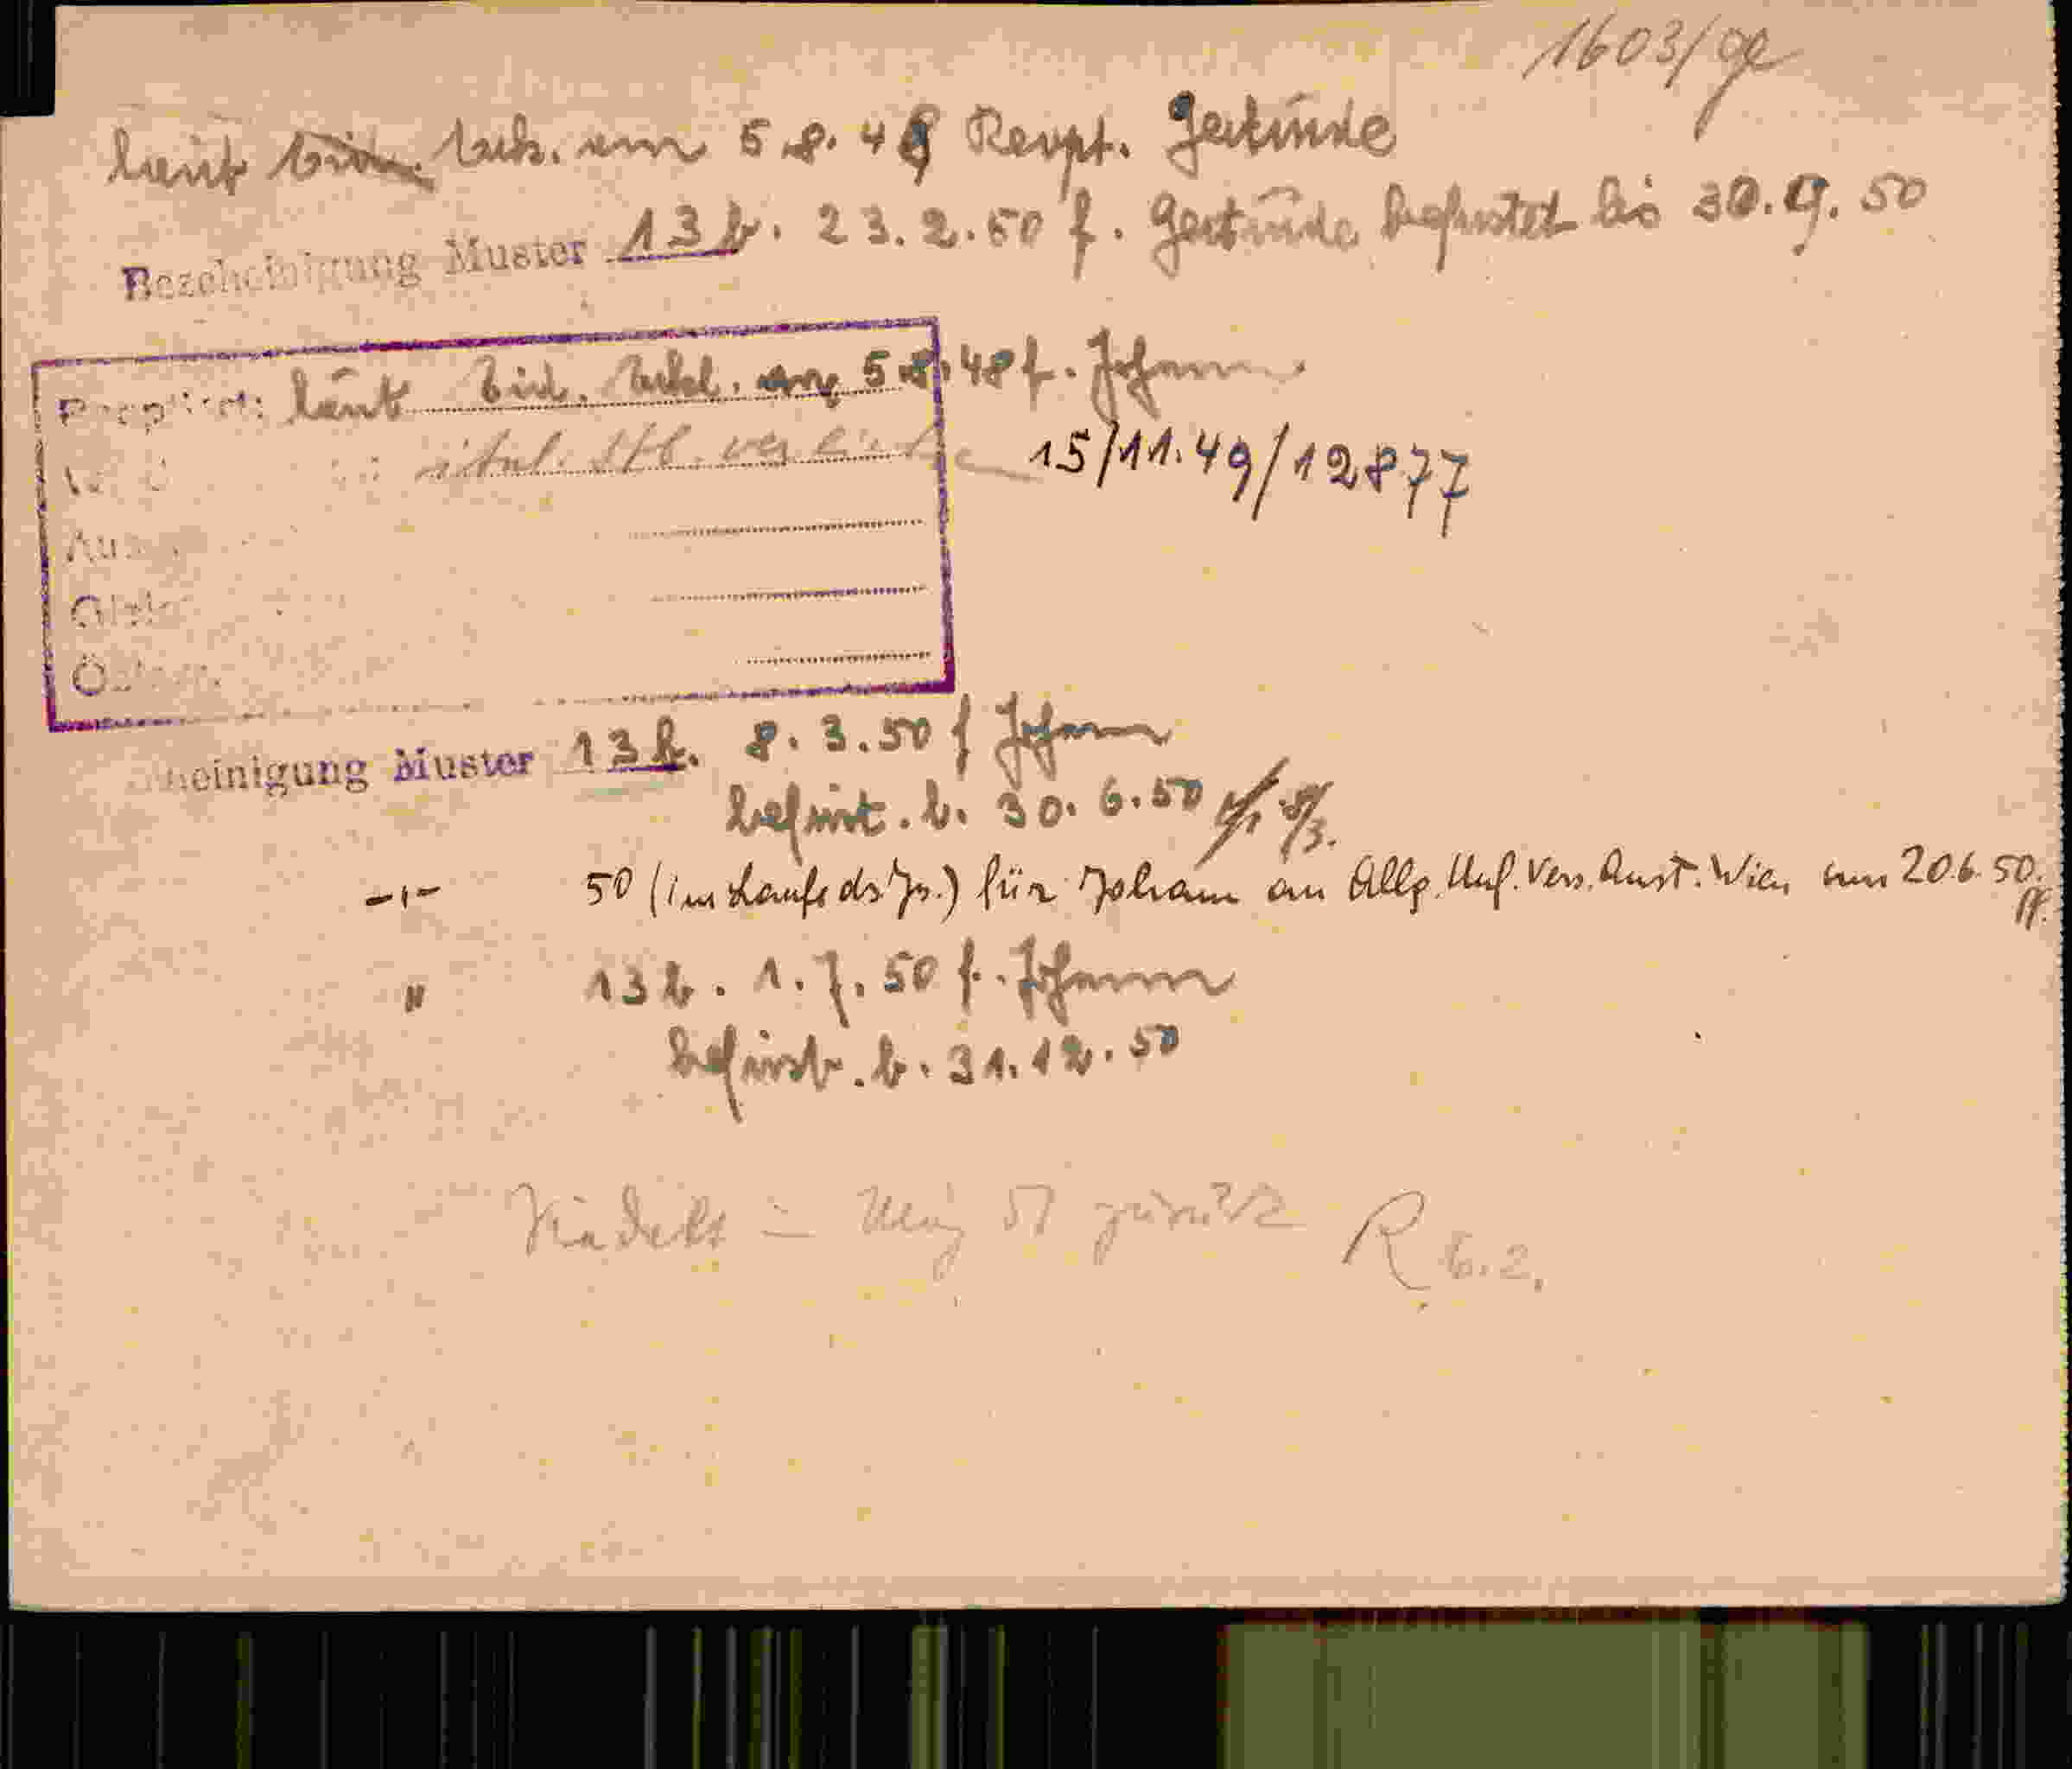 1603/
laut Eid. Erkl. am 5.8.48 Reopt. Gertrude
Bescheinigung Muster 13 b. 23.2.50 f. Gertrude befristet bis 30.9.50
laut Eid. Erkl. am 5.8.48 f. Johann
ital. Stb. verliehen 15/11.49/12877
einigung Muster 13 b. 8.3.50 f Johann
befrist. b. 30.6.50 8/3.
-"- 50 (im Laufe ds. Js.) für Johann an Allg. Unf. Vers. Anst. Wien am 20.6.50.
" 13 b. 1.7.50 f. Johann
befrist. b. 31.12.50
51 zurück R 6.2.